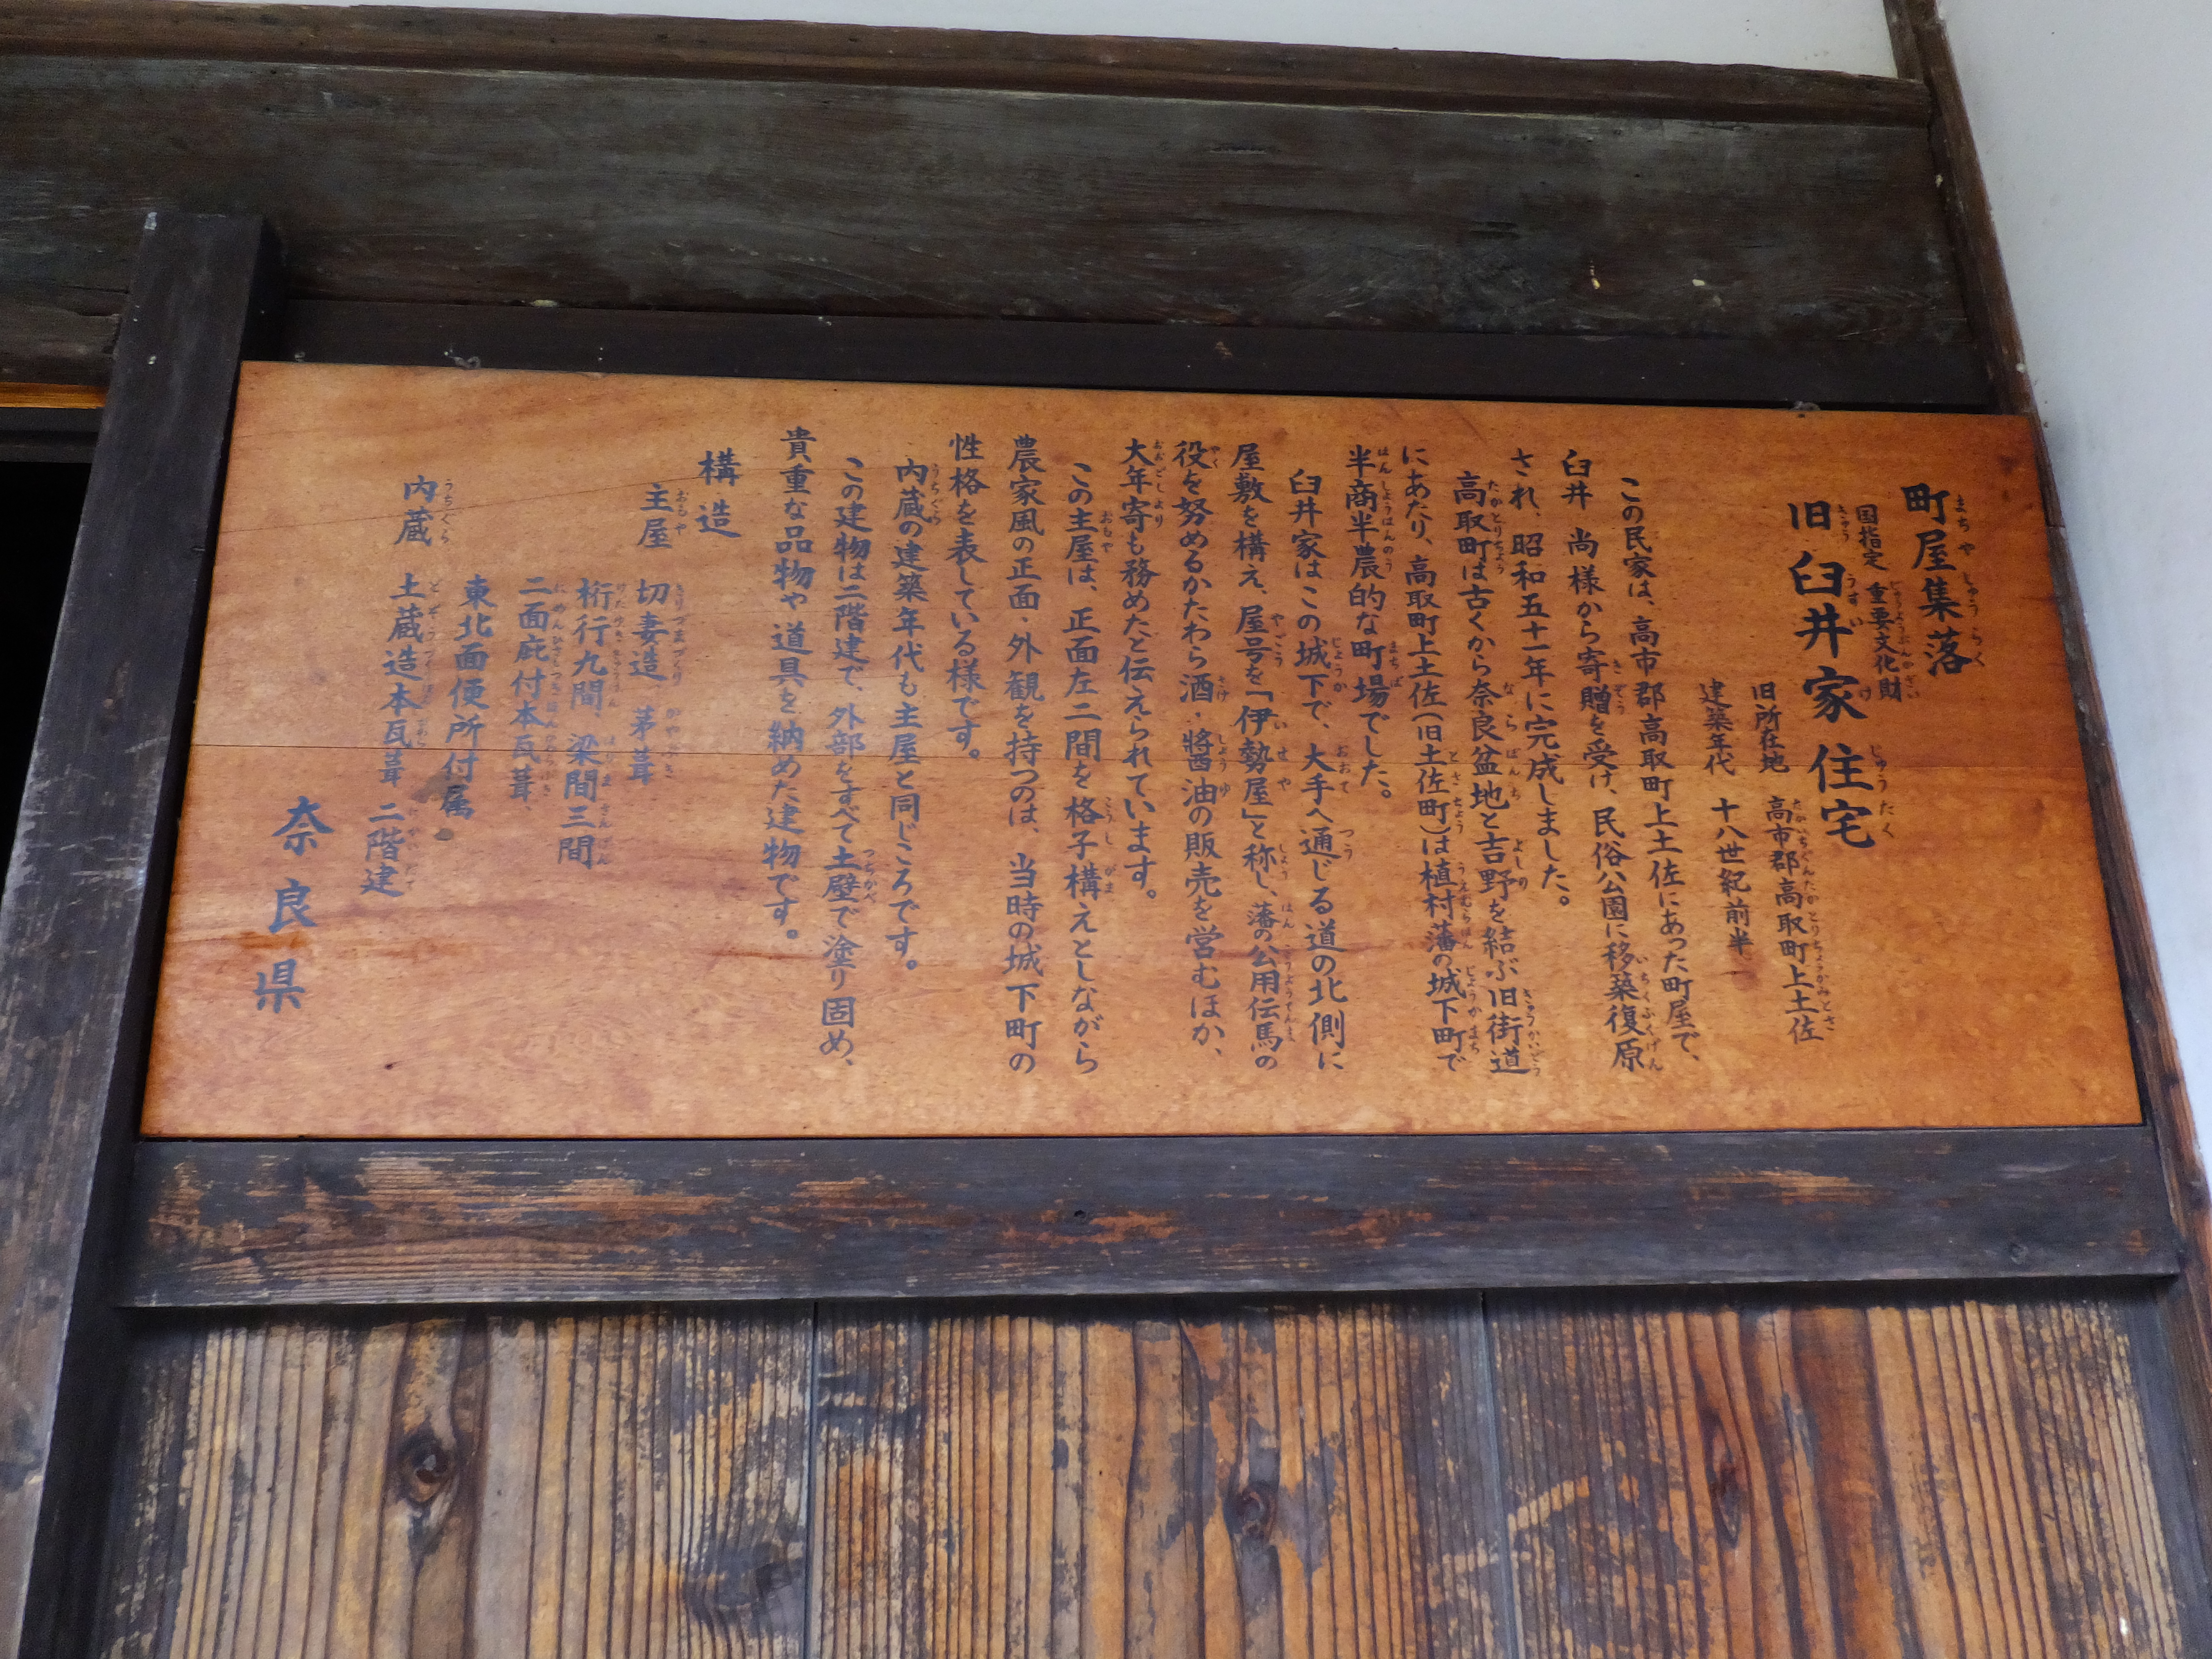 町屋集落
国指定 重要文化財
旧臼井家住宅
旧所在地 高市郡高取町上土佐
建築年代 十八世紀前半
この民家は、高市郡高取町上土佐にあった町屋で、
臼井 尚様から寄贈を受け、民俗公園に移築復原
され、昭和五十一年に完成しました。
高取町は古くから奈良盆地と吉野を結ぶ旧街道
にあたり、高取町上土佐(旧土佐町)は植村藩の城下町で
半商半農的な町場でした。
臼井家はこの城下で、大手へ通じる道の北側に
屋敷を構え、屋号を「伊勢屋」と称し、藩の公用伝馬の
役を努めるかたわら酒・醤油の販売を営むほか、
大年寄も務めたと伝えられています。
この主屋は、正面左二間を格子構えとしながら
農家風の正面・外観を持つのは、当時の城下町の
性格を表している様です。
内蔵の建築年代も主屋と同じころです。
この建物は二階建で、外部をすべて土壁で塗り固め、
貴重な品物や道具を納めた建物です。
構造
主屋 切妻造 茅葺
桁行九間、梁間三間
二面庇付本瓦葺、
東北面便所付属
内蔵 土蔵造本瓦葺 二階建
奈良県